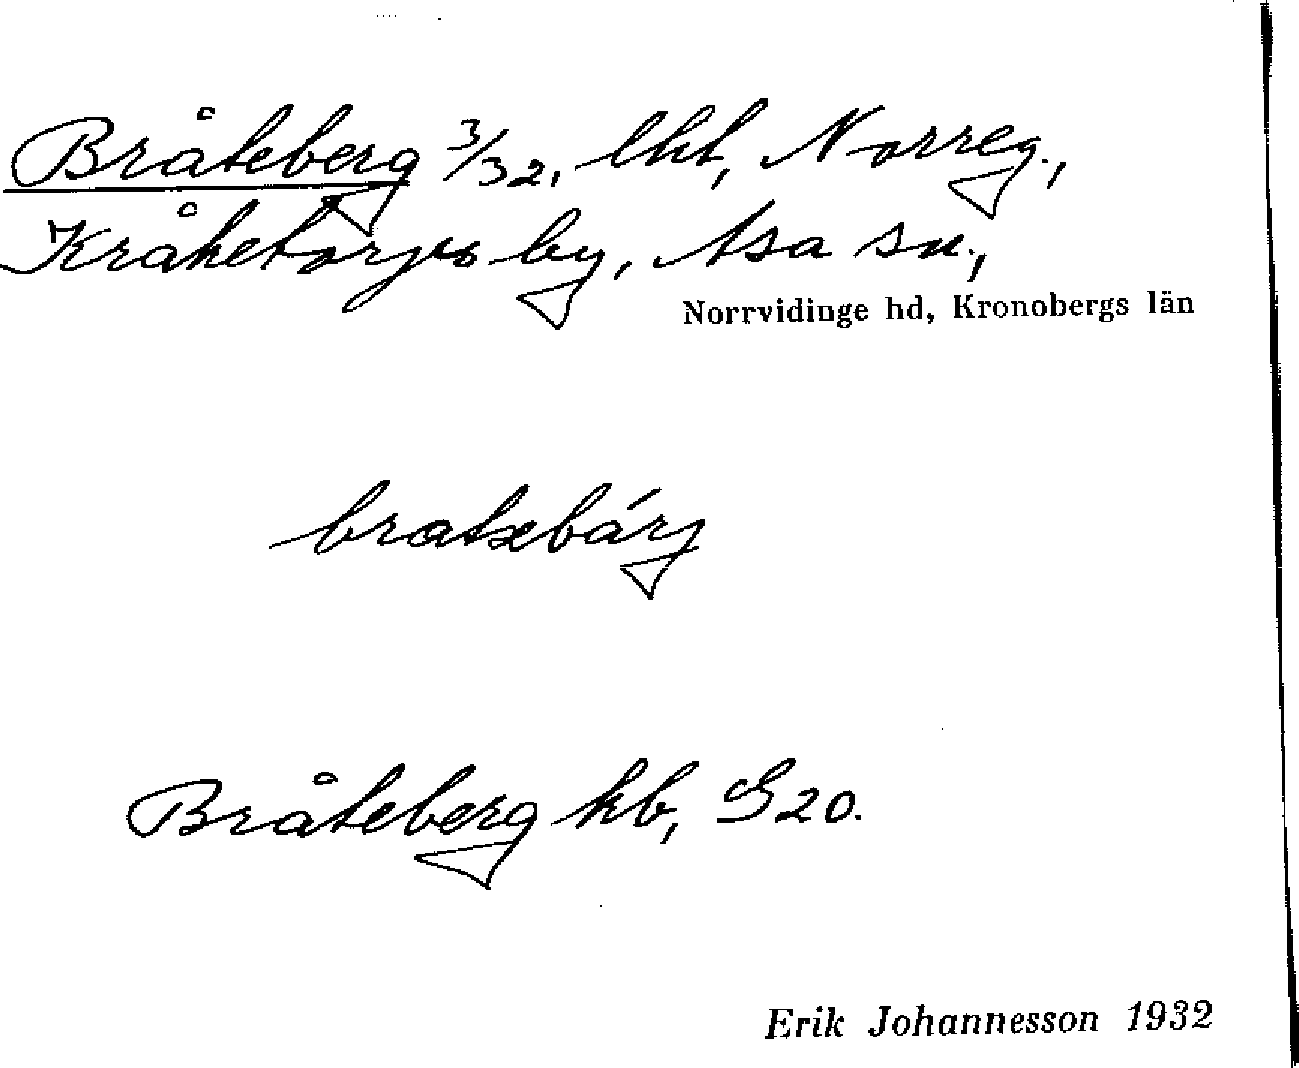 Bråteberg 3/32, lht, Norreg.,
Kråketorps by, Asa sn.,
Norrvidinge hd, Kronobergs län
bratəbárj
Bråteberg kb, G20.
Erik Johannesson 1932